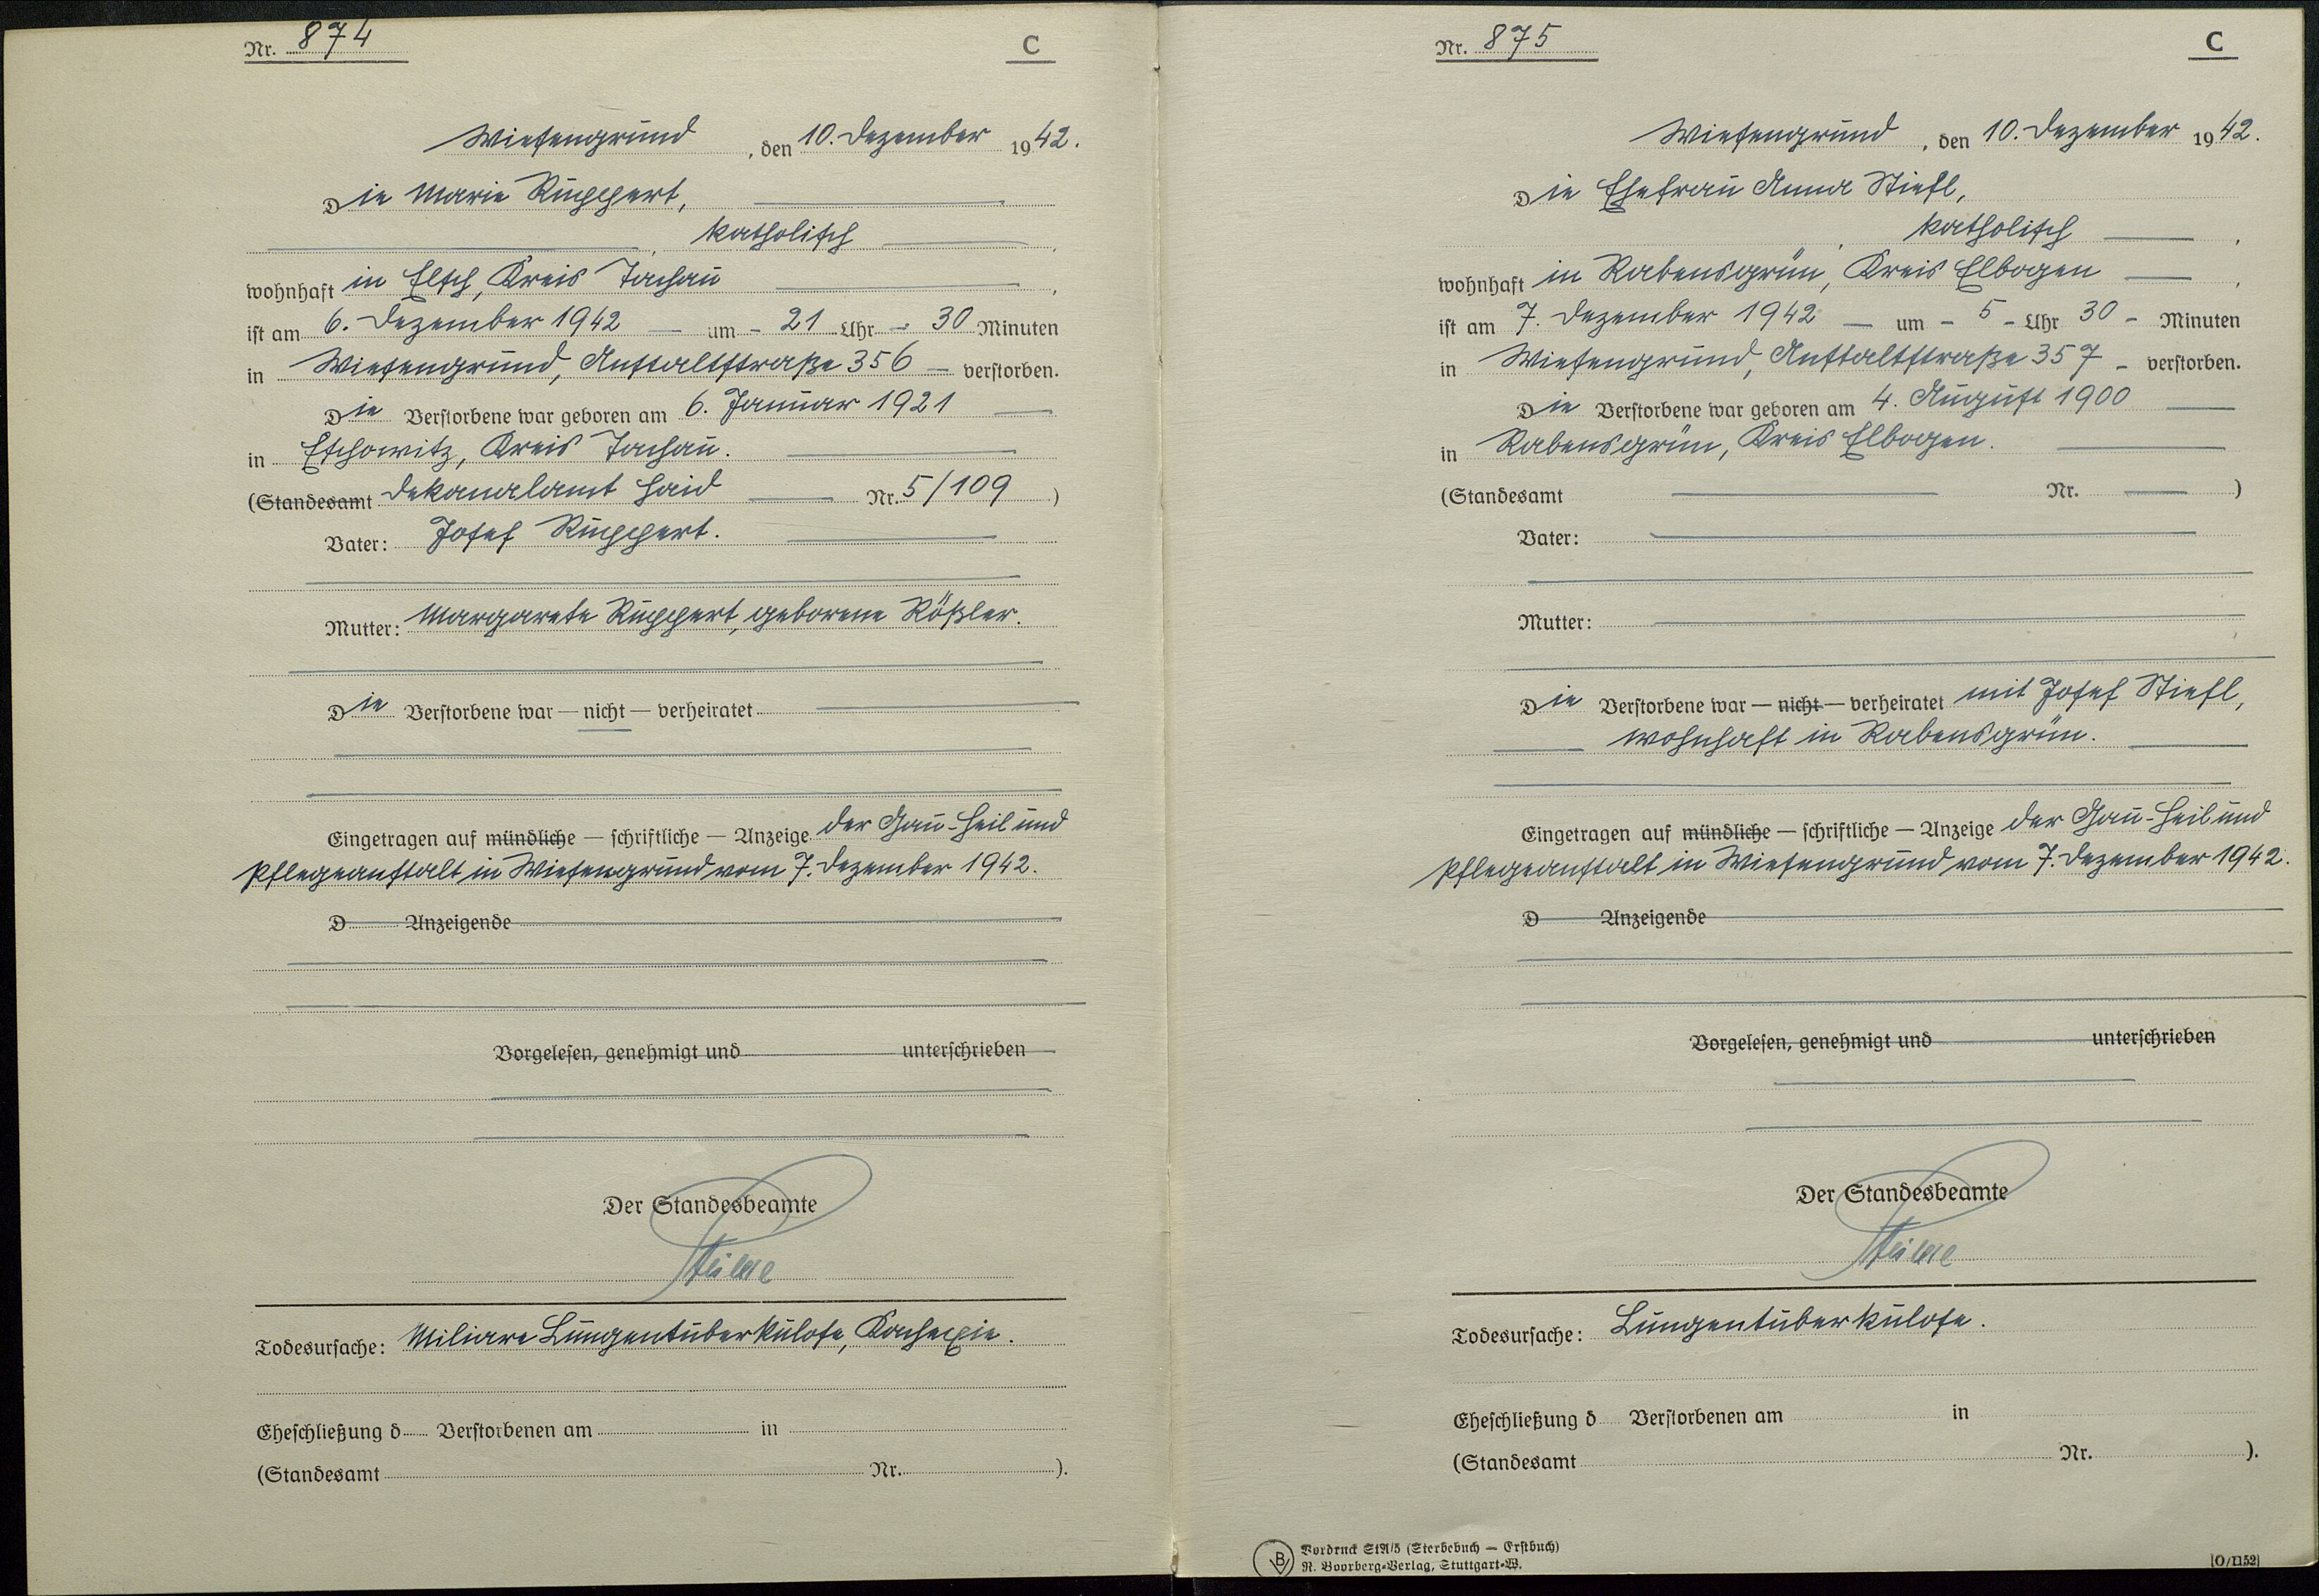 Nr. 874
C
Wiesengrund, den 10. Dezember 1942.
Die Marie Ruppert,
katholisch,
wohnhaft in Eltsch, Kreis Tachau,
ist am 6. Dezember 1942 — um - 21 Uhr - 30 Minuten
in Wiesengrund, Anstaltstraße 356 — verstorben.
Die Verstorbene war geboren am 6. Januar 1921
in Etschowitz, Kreis Tachau.
(Standesamt Dekanalamt Haid Nr. 5/109)
Vater: Josef Ruppert.
Mutter: Margarete Ruppert, geborene Rößler.
Die Verstorbene war — nicht — verheiratet
Eingetragen auf mündliche — schriftliche — Anzeige der Gau-Heil und
Pflegeanstalt in Wiesengrund vom 7. Dezember 1942.
D Anzeigende
Vorgelesen, genehmigt und unterschrieben
Der Standesbeamte
Todesursache: Miliare Lungentuberkulose, Kachexie.
Eheschließung d Verstorbenen am in
(Standesamt Nr. ).
Nr. 875
C
Wiesengrund, den 10. Dezember 1942.
Die Ehefrau Anna Stiefl,
katholisch,
wohnhaft in Rabensgrün, Kreis Elbogen,
ist am 7. Dezember 1942 — um - 5 - Uhr 30 - Minuten
in Wiesengrund, Anstaltstraße 357 - verstorben.
Die Verstorbene war geboren am 4. August 1900
in Rabensgrün, Kreis Elbogen.
(Standesamt Nr. )
Vater:
Mutter:
Die Verstorbene war — nicht — verheiratet mit Josef Stiefl,
wohnhaft in Rabensgrün.
Eingetragen auf mündliche — schriftliche — Anzeige der Gau-Heil und
Pflegeanstalt in Wiesengrund vom 7. Dezember 1942.
D Anzeigende
Vorgelesen, genehmigt und unterschrieben
Der Standesbeamte
Todesursache: Lungentuberkulose.
Eheschließung d Verstorbenen am in
(Standesamt Nr. ).
B
Vordruck StA/3 (Sterbebuch — Erstbuch)
R. Boorberg-Verlag, Stuttgart-W.